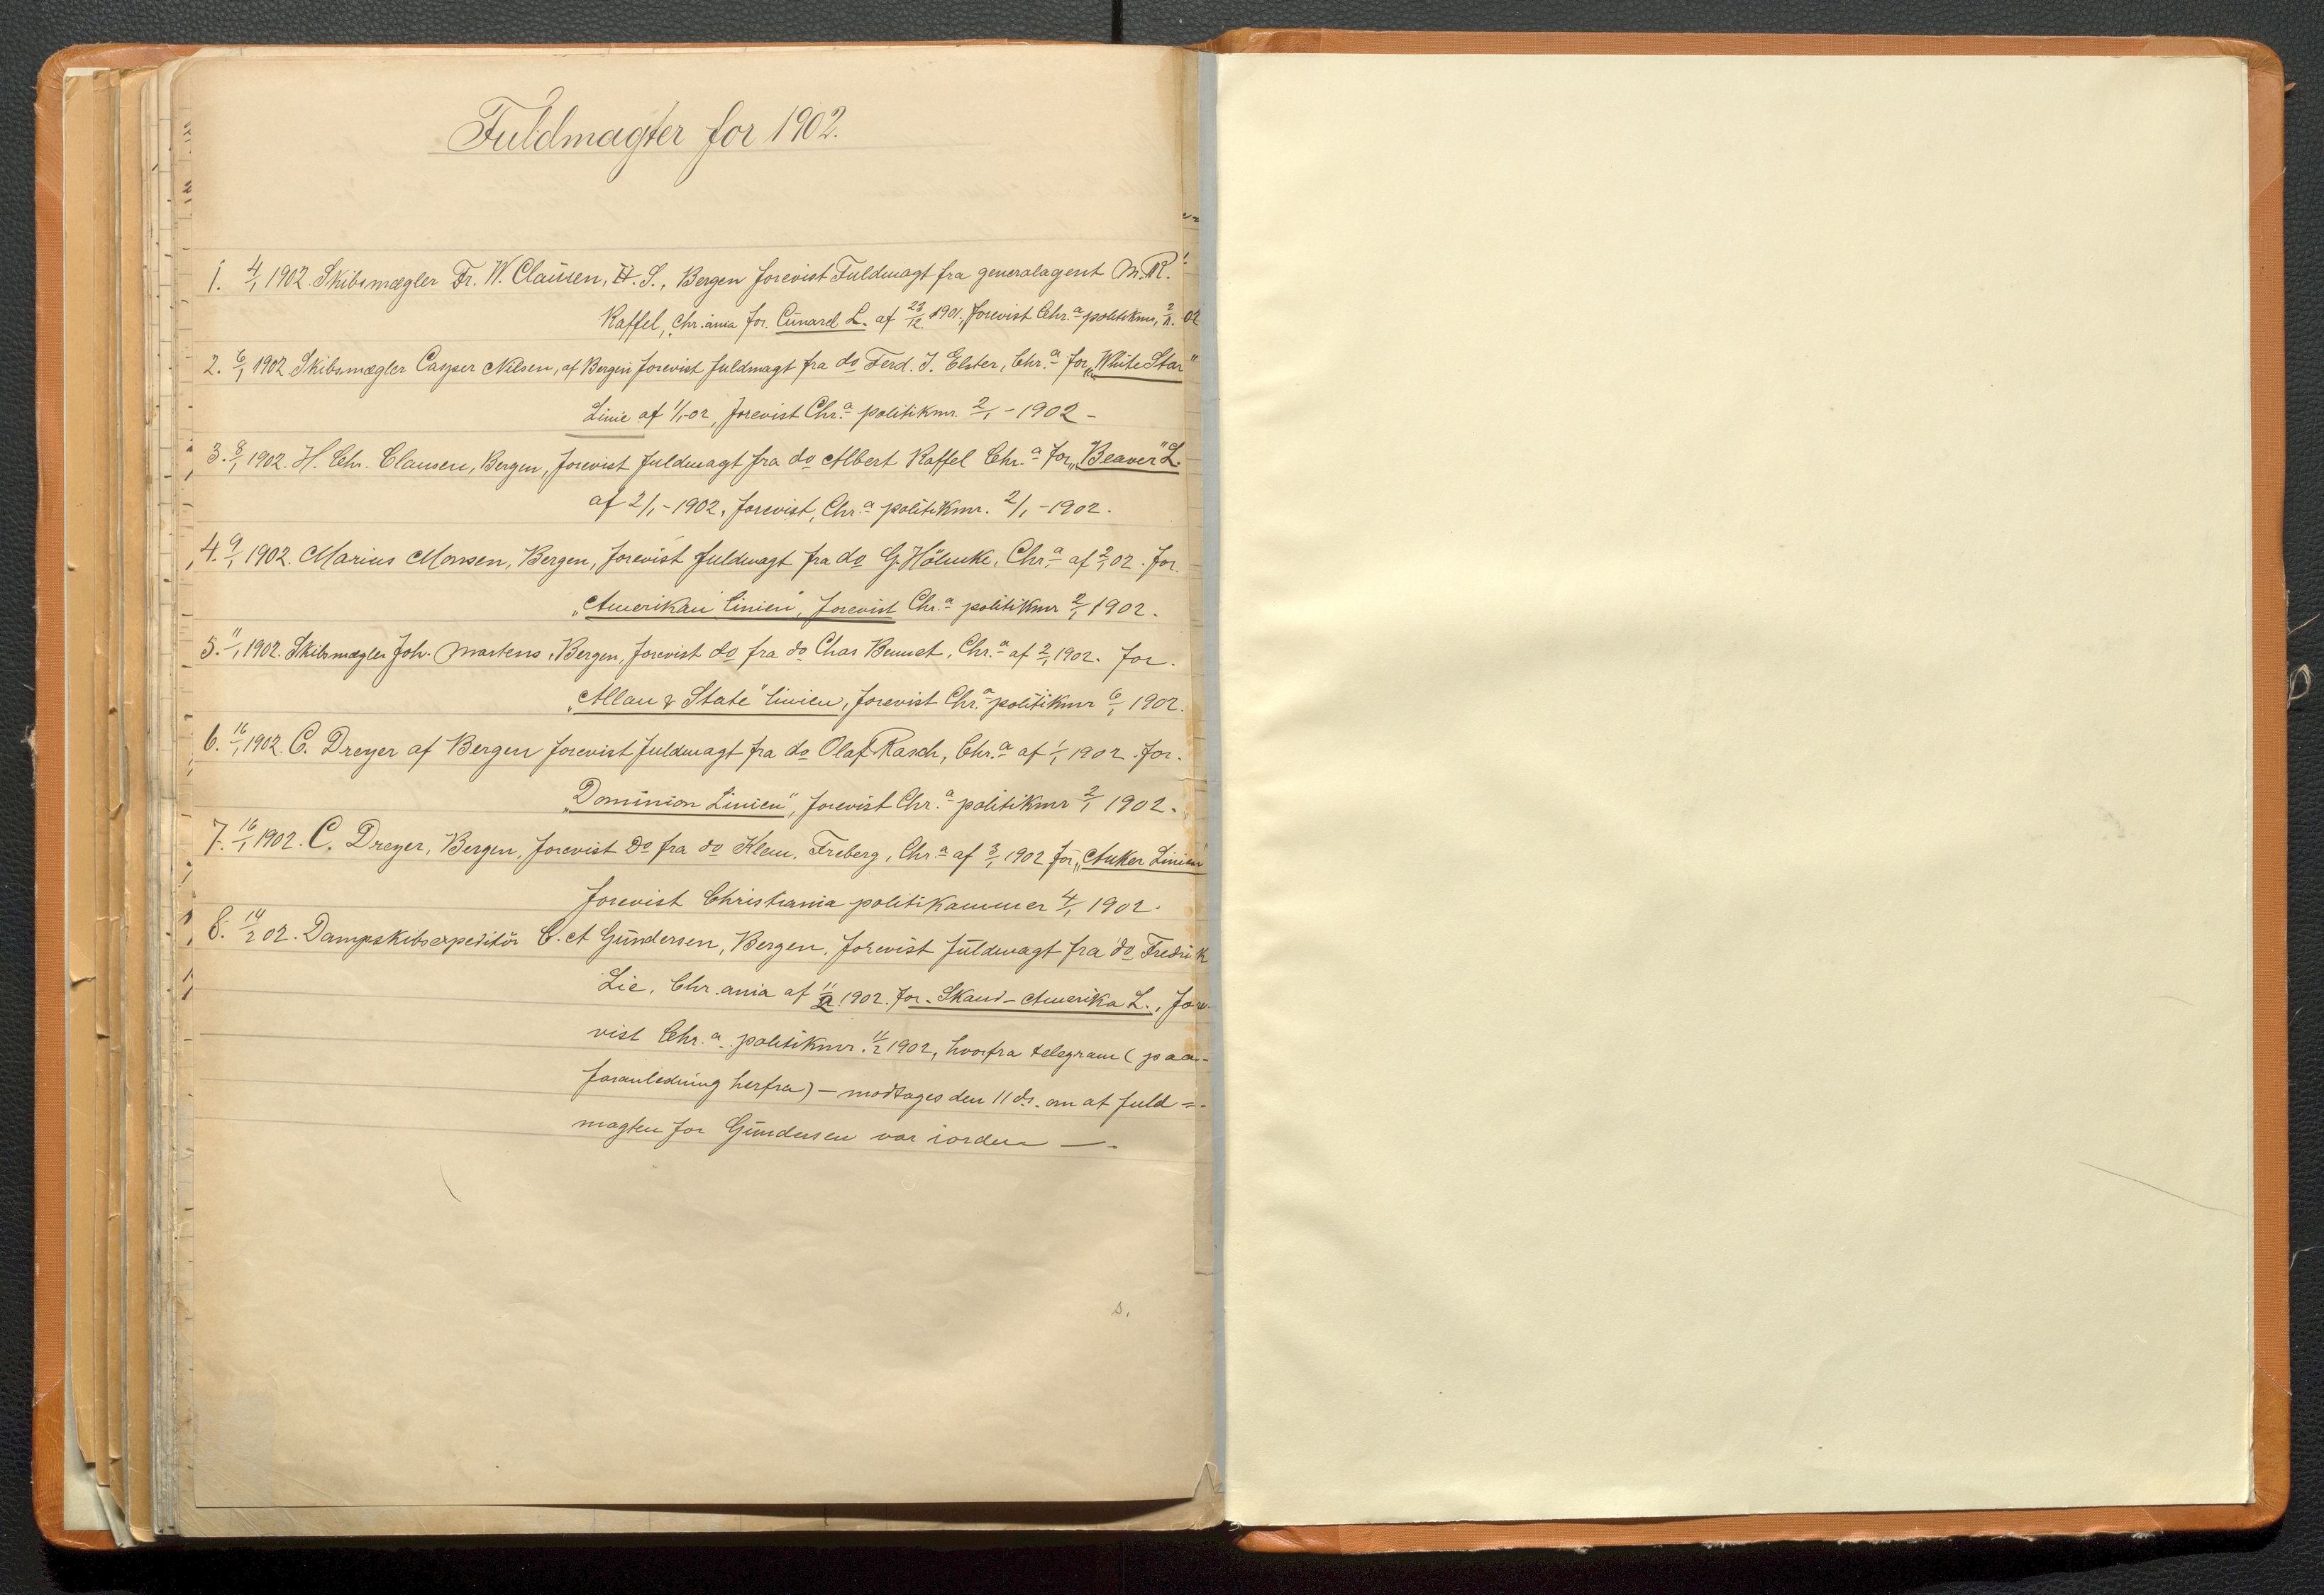 Fuldmagter for 1902.
1. 4/1 1902. Skibsmægler Fr. W. Clausen, H. S., Bergen forevist Fuldmagt fra generalagent M. R.
Raffel, Chr.ania for Cunard L. af 23/12 1901, forevist Chr.a politikmr, 2/1. 02
2. 6/1 1902 Skibsmægler Casper Nilsen, af Bergen forevist fuldmagt fra do Ferd. J. Elster, Chr.a for „White Star"
Linie af 1/1-02, forevist Chr.a politikmr. 2/1 - 1902 -
3. 8/1 1902. H. Chr. Clausen, Bergen, forevist fuldmagt fra do Albert Raffel Chr.a for „Beaver" L.
af 2/1 - 1902, forevist, Chr.a politikmr. 2/1 - 1902.
4. 9/1 1902. Marius Monsen, Bergen, forevist fuldmagt fra do G. Hölmcke, Chr.a af 2/1 02. for.
„Amerikan linien", forevist Chr.a politikmr 2/1 1902.
5. 11/1 1902. Skibsmægler Joh. Martens, Bergen, forevist do fra do Chas Bennet, Chr.a af 2/1 1902. for.
„Allan & State" linien, forevist Chr.a politikmr 6/1 1902.
6. 16/1 1902. C. Dreyer af Bergen forevist fuldmagt fra do Olaf Rasch, Chr.a af 1/1 1902. for.
„Dominion Linien", forevist Chr.a politikmr 2/1 1902.
7. 16/1 1902. C. Dreyer, Bergen, forevist Do fra do Klem. Freberg, Chr.a af 3/1 1902 for „Anker Linien
forevist Christiania politikammer 4/1 1902.
8. 14/2 02. Dampskibsexpeditör C. A Gundersen, Bergen, forevist fuldmagt fra do Fredrik
Lie, Chr.ania af 11/2 1902. for. Skand-Amerika L., fore-
vist Chr.a politikmr. 11/2 1902, hvorfra telegram (paa-
foranledning herfra) - modtages den 11 ds. om at fuld=
magten for Gundersen var iorden —.
s.